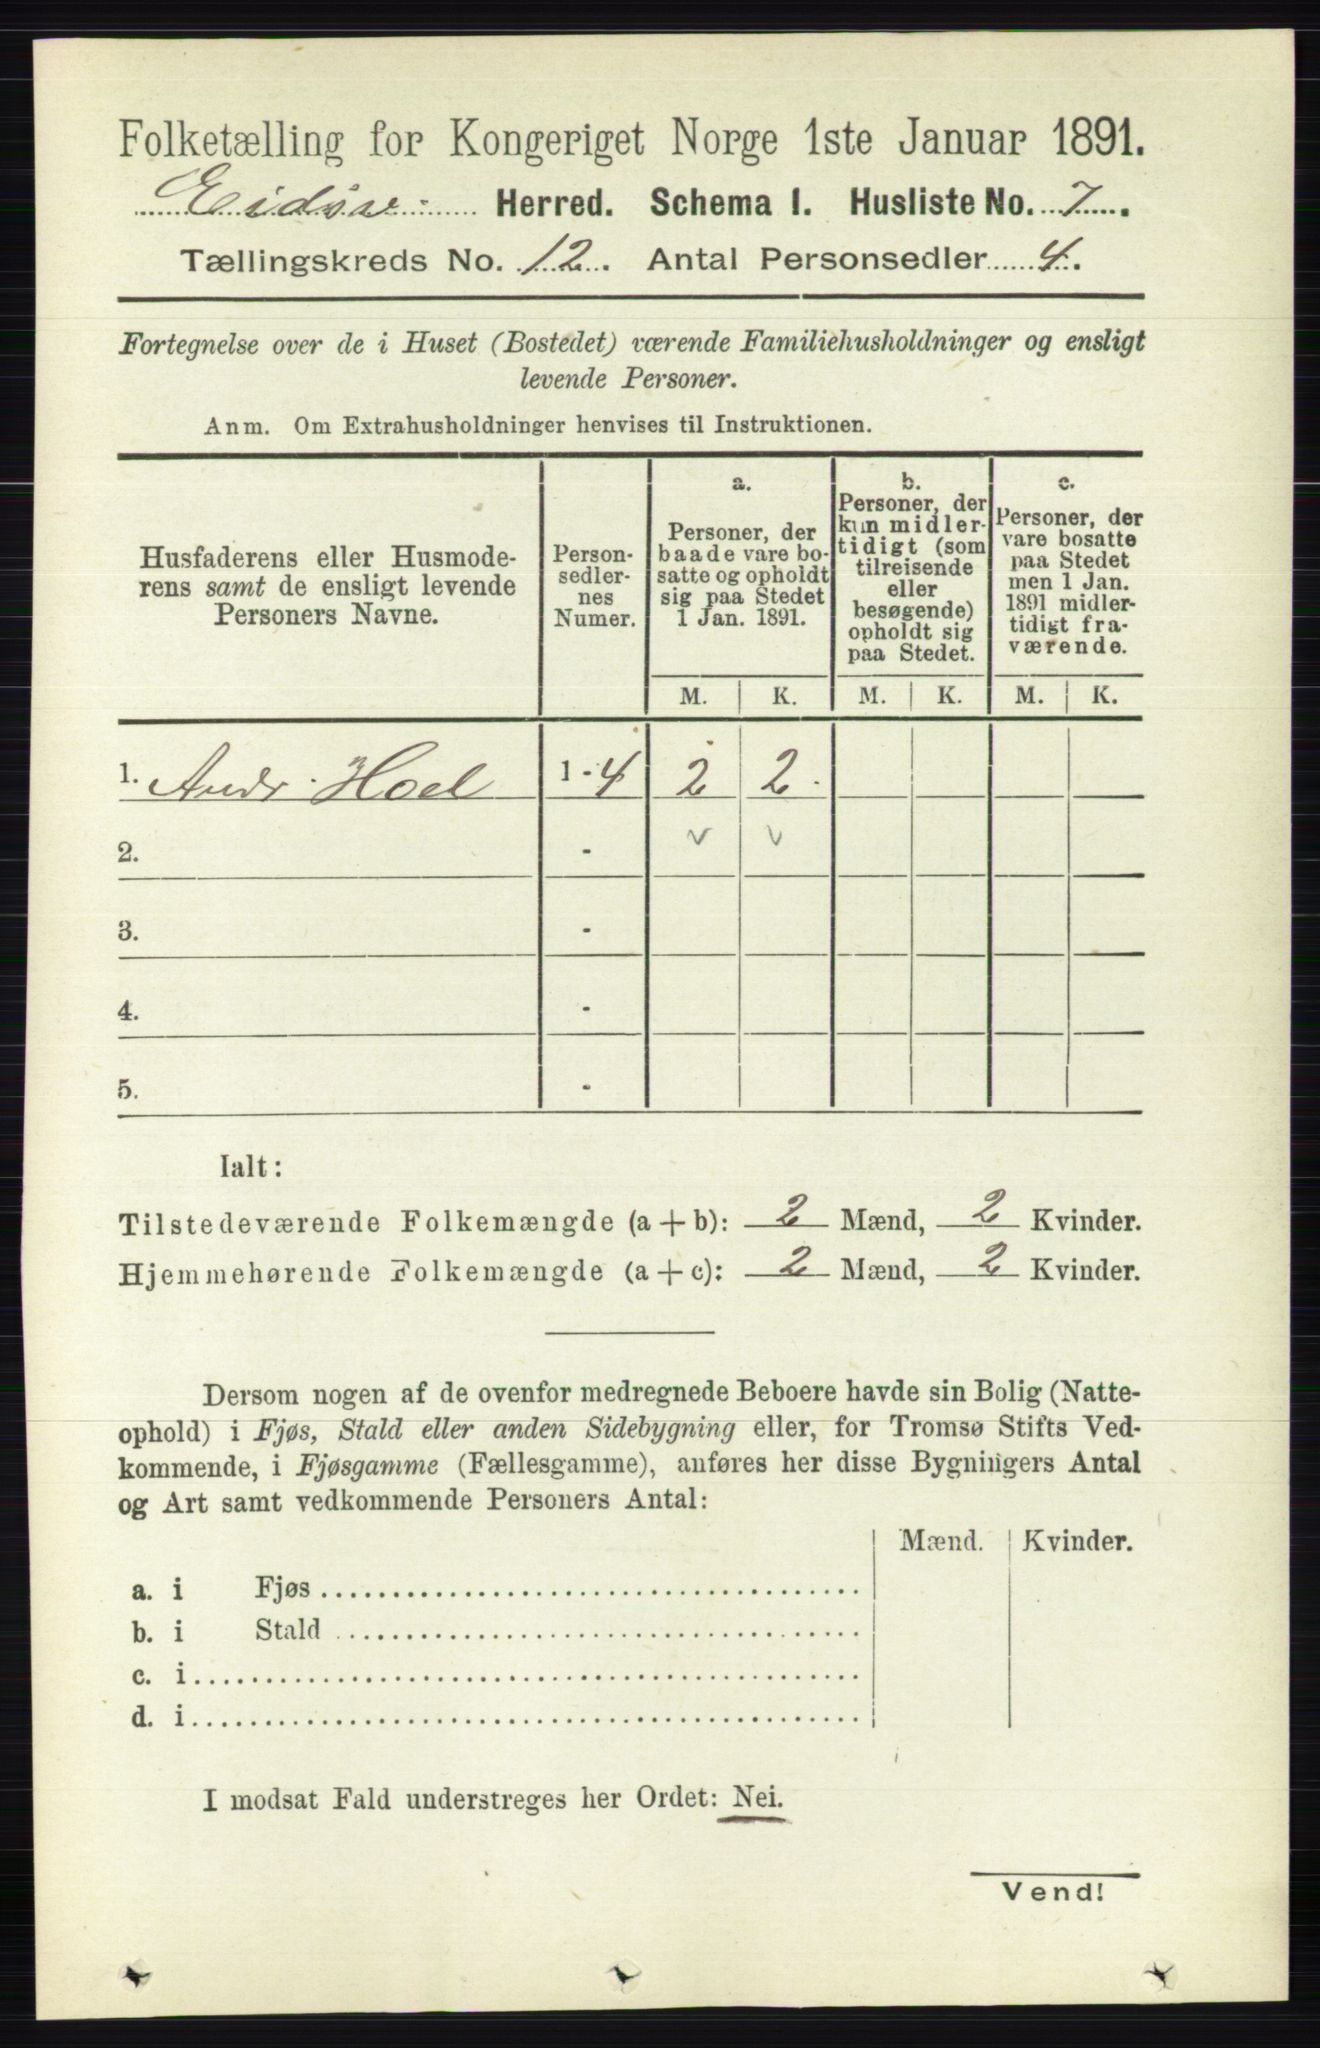 Folketælling for Kongeriget Norge 1ste Januar 1891.
Herred. Schema I. Husliste No. 7.
Tællingskreds No. 12. Antal Personsedler 4.
Fortegnelse over de i Huset (Bostedet) værende Familiehusholdninger og ensligt
levende Personer.
Anm. Om Extrahusholdninger henvises til Instruktionen.
Husfaderens eller Husmode-
rens samt de ensligt levende
Personers Navne.
Person-
sedler-
nes
Numer.
a.
Personer, der
baade vare bo-
satte og opholdt
sig paa Stedet
1 Jan. 1891.
b.
Personer, der
kun midler-
tidigt (som
tilreisende
eller
besøgende)
opholdt sig
paa Stedet.
c.
Personer, der
vare bosatte
paa Stedet
men 1 Jan.
1891 midler-
tidigt fra-
værende.
M. K. M. K. M. K.
1. Andr. Hoel 1 - 4 2 2
2. - v v
3. -
4. -
5. -
Ialt:
Tilstedeværende Folkemængde (a + b): 2 Mænd, 2 Kvinder.
Hjemmehørende Folkemængde (a + c): 2 Mænd, 2 Kvinder.
Dersom nogen af de ovenfor medregnede Beboere havde sin Bolig (Natte-
ophold) i Fjøs, Stald eller anden Sidebygning eller, for Tromsø Stifts Ved-
kommende, i Fjøsgamme (Fællesgamme), anføres her disse Bygningers Antal
og Art samt vedkommende Personers Antal:
Mænd. Kvinder.
a. i Fjøs
b. i Stald
c. i
d. i
I modsat Fald understreges her Ordet: Nei.
Vend!